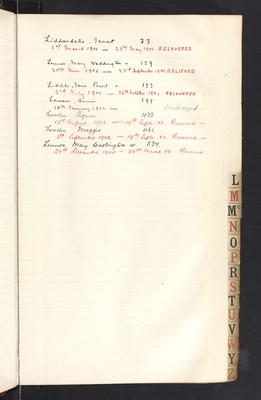 Liddersdale, Janet 33
1st March 1901 — 25th May 1901 RECOVERED
Lennox, Mary Waddington or 129
30th June 1901 — 23rd September 1901 RELIEVED
Liddle, Jane 133
3rd July 1901 — 26th October 1901 RECOVERED
Lawson, Annie 297
18th January 1902 — Discharged
Lowden Agnes 1133
12th August 1902 — 19th Septr. 02 Recovered —
Lowden Maggie 1161
8th September 1902 — 19th Septr. 02 Recovered —
Lennox May Waddington or 584.
24th December 1902 — 29th March 03 Recovered
L
M
Mc
N
O
P
R
S
T
U
V
W
Y
Z